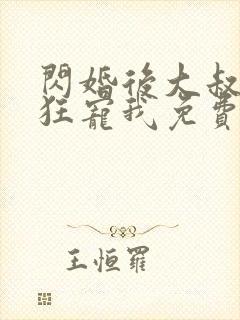 閃婚後大叔
狂寵我免費
王恒羅